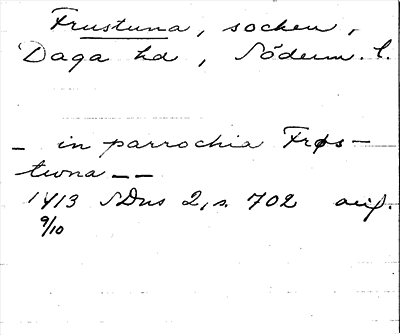 Frustuna, socken,
Daga hd, Söderm. l.
– in parrochia Frøs–
twna – –
1413 SDns 2, s. 702 avsk.
9/10